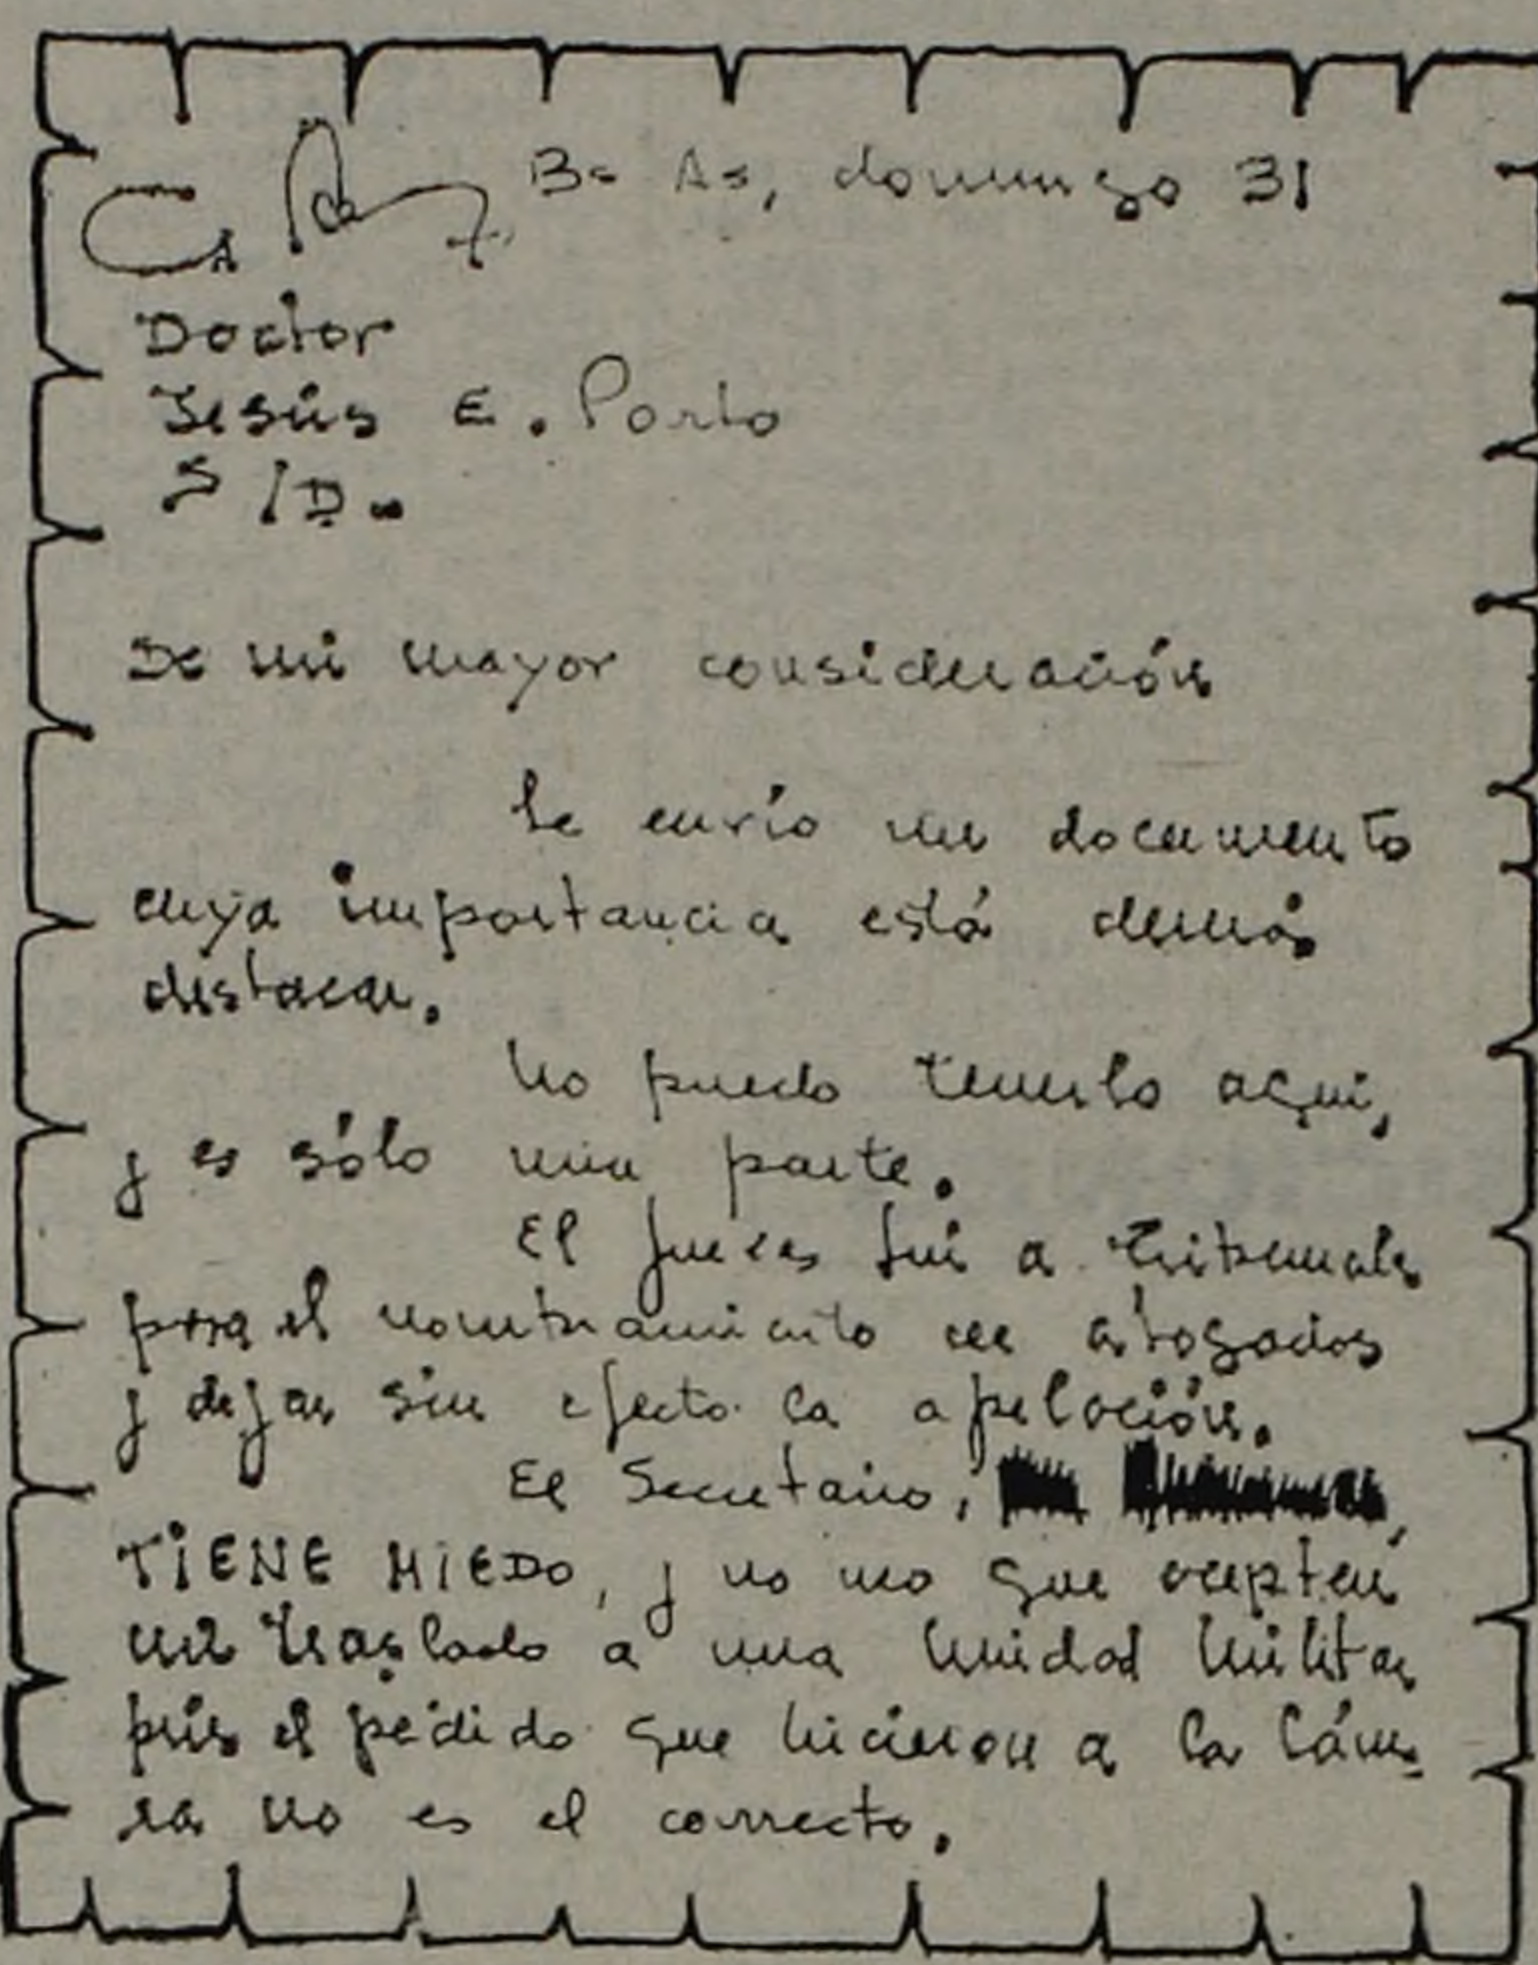 Bs As, domingo 31
Doctor
Jesús E. Porto
S / D.
De mi mayor consideración
Le envío un documento
cuya importancia está demás
destacar.
No puedo tenerlo aquí,
y es sólo una parte.
El jueves fui a tribunales
para el nombramiento de abogados
y dejar sin efecto la apelación.
El Secretario,
TIENE MIEDO, y no creo que acepten
un traslado a una Unidad Militar
pues el pedido que hicieron a la Cáma-
ra no es el correcto.